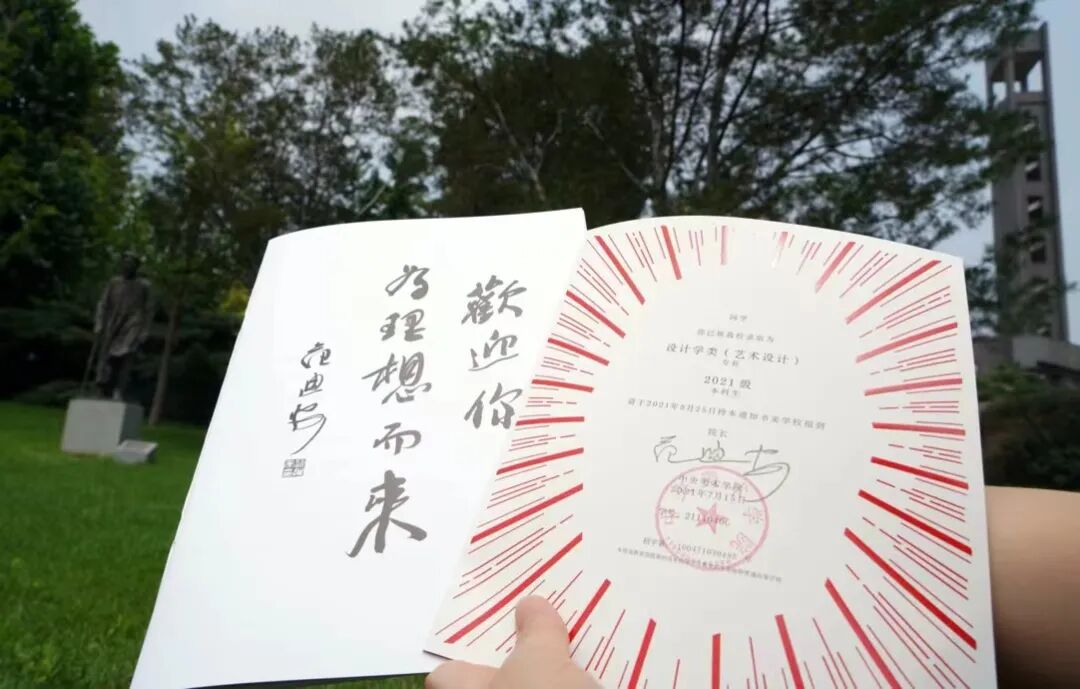 歡迎你
为理想而来
范迪安
同学
你已被我校录取为
设计学类（艺术设计）
专业
2021级
本科生
请于2021年8月25日持本通知书来学校报到
院长
范迪安
中央美术学院
2021年7月15日